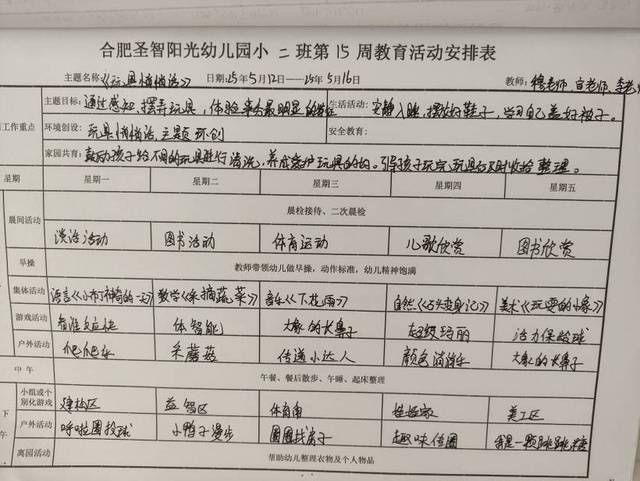 合肥圣智阳光幼儿园小二班第15周教育活动安排表
主题名称《玩具悄悄话》 日期:25年5月12——25年5月16日 教师: 穆老师, 宣老师, 李老
主题目标: 通过感知、摆弄玩具, 体验 最明显的 生活活动: 安静入睡, 摆放好鞋子, 学习自己盖好被子。
工作重点
环境创设: 玩具悄悄话主题环创 安全教育:
家园共育: 鼓励孩子给不同的玩具进行清洗, 养成爱护玩具的 。引导孩子玩完玩具后及时收拾整理。
星期 星期一 星期二 星期三 星期四 星期五
晨间活动 晨检接待、二次晨检
谈话活动 图书活动 体育运动 儿歌欣赏 图书欣赏
早操 教师带领幼儿做早操, 动作标准, 幼儿精神饱满
集体活动 语言《小布丁神奇的一天》 数学《采摘蔬菜》 音乐《下花雨》 自然《石头变身记》 美术《玩耍的小象》
游戏活动 看谁反应快 体智能 大象的长鼻子 超级玛丽 活力保龄球
户外活动 爬爬乐 采蘑菇 传递小达人 颜色消消乐 大象的长鼻子
中午 午餐、餐后散步、午睡、起床整理
下午
小组或个别化游戏 建构区 益智区 体育角 娃娃家 美工区
户外活动 呼啦圈投球 小鸭子漫步 圈圈找房子 趣味传圈 我是一颗跳跳糖
离园活动 帮助幼儿整理衣物及个人物品